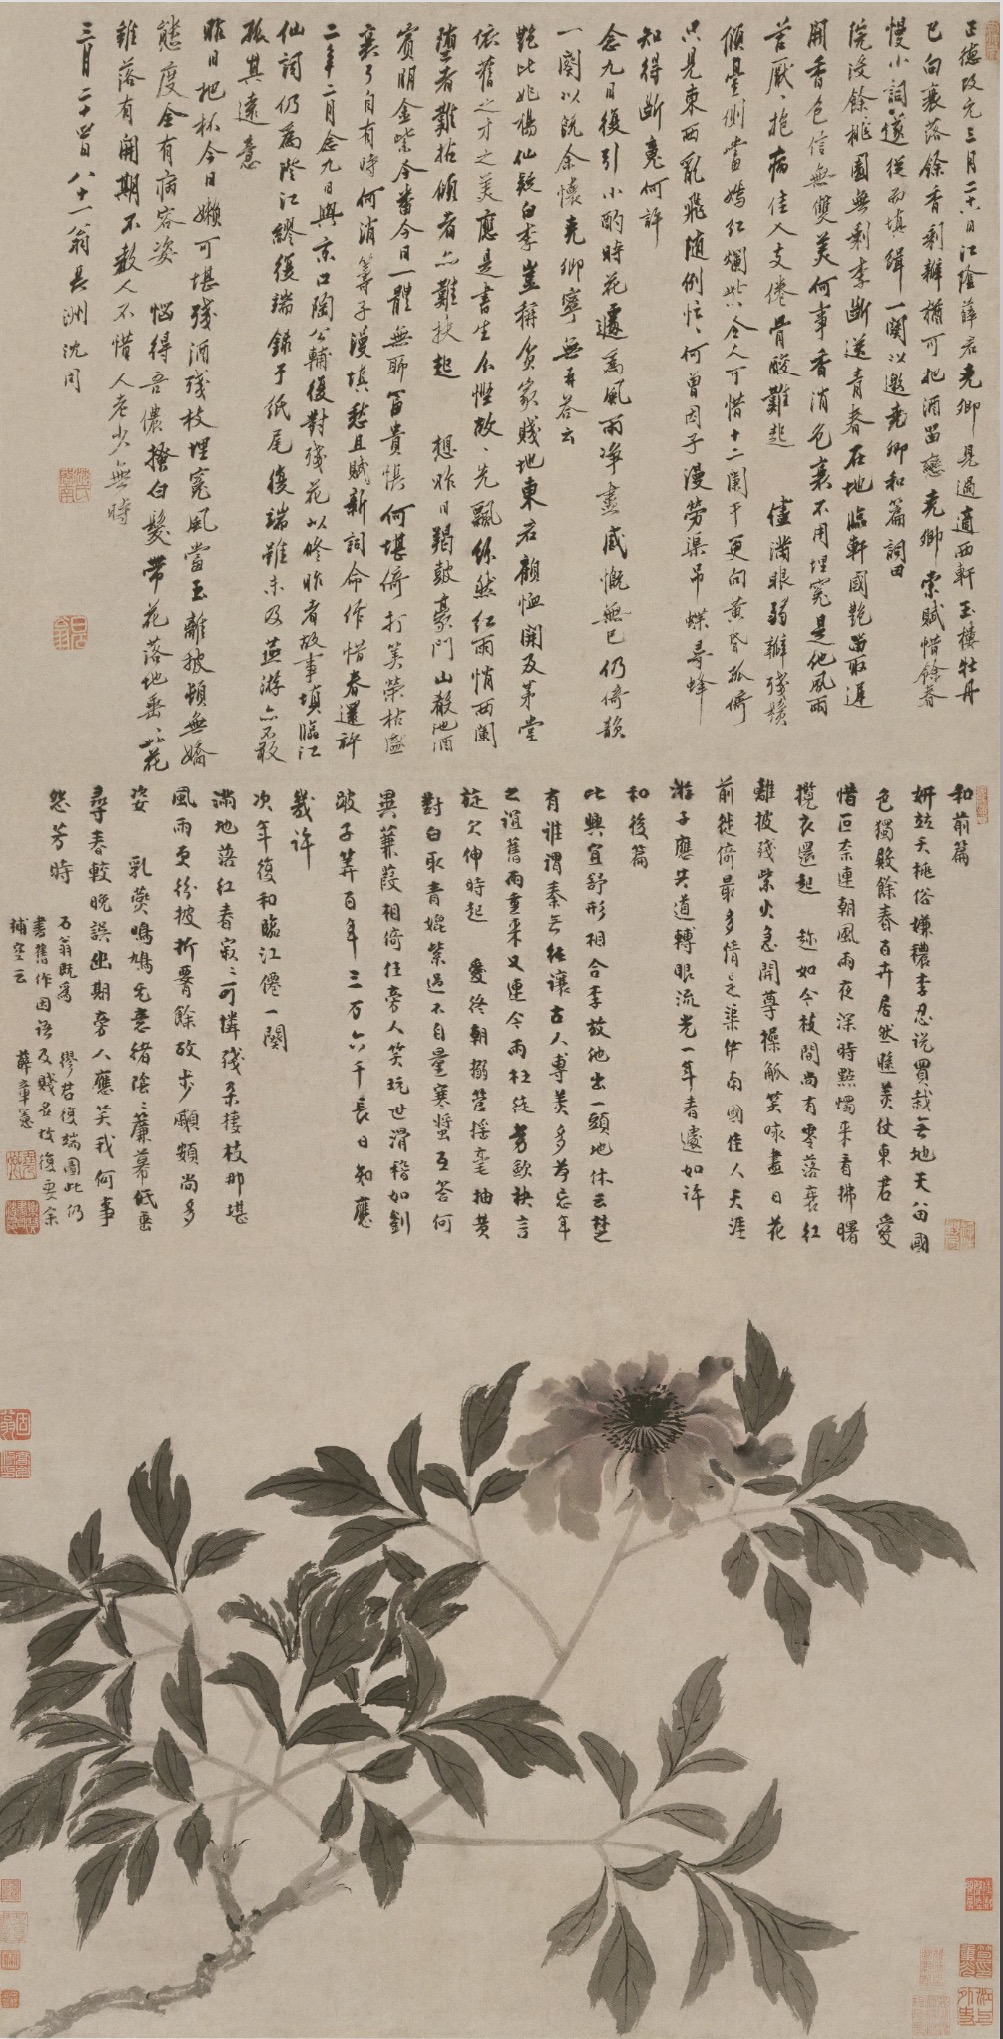 正德改元三月二十八日江陰薛君堯卿見過適西軒玉樓牡丹
已向衰落餘香剩瓣猶可把酒留戀堯卿索賦惜餘春
慢小詞遂從而填緝一闋以邀堯卿和篇詞曰
院沒餘桃園無剩李斷送青春在地臨軒國艷留取遲
開香色信無雙美何事香消色衰不用埋冤是他風雨
苦厭厭抱病佳人支倦骨酸難起 儘滿眼弱瓣殘鬚
傾臺側當嫣紅爛紫令人可惜十二闌干更向黃昏孤倚
只見東西亂飛隨例忙忙何曾因子漫勞渠吊蝶尋蜂
知得斷魂何許
念九日復引小酌時花遽為風雨淨盡感慨無已仍倚韻
一闋以既余懷堯卿寧無再答云
艷比姚楊仙疑白李豈稱貧家賤地東君顧恤開及茅堂
依舊之才之美應是書生分慳故故先飄絲然紅雨悄西闌
墮者難拈傾者亦難扶起 想昨日羯鼓豪門山殽池酒
賓朋金紫今番今日一體無聊富貴悞何堪倚打算榮枯盛
衰了自有時何消籌子漫填愁且賦新詞命作惜春還許
二年二月念九日與京口陶公輔復對殘花以修昨者故事填臨江
仙詞仍為澄江繆復端錄于紙尾復端雖未及燕游亦不敢
孤其遠意
昨日把杯今日嬾可堪殘酒殘枝埋冤風當玉離披頓無嬌
態度全有病容姿 惱得吾儂搔白髮帶花落地垂垂花
雖落有開期不教人不惜人老少無時
三月二十四日八十一翁長洲沈周
和前篇
妍並夭桃俗嫌穠李忍說買栽無地天留國
色獨殿餘春百卉居然甦羨仗東君愛
惜叵奈連朝風雨夜深時點燭來看拂曙
攬衣還起 趂如今枝間尚有零落衰紅
離披殘紫火急開尊操觚笑咏盡日花
前徙倚最多情是渠伴南國佳人天涯
游子應共道轉眼流光一年春遽如許
和後篇
比興宜舒形相合李放他出一頭地休云楚
有誰謂秦無絍讓古人專美多為忘年
之誼舊雨重來又連今雨枉徒勞歐袂言
旋欠伸時起 愛終朝搦管揺毫抽黃
對白取青媲紫過不自量寒螿互答何
異蒹葭相倚任旁人笑玩世滑稽如劉
跛子筭百年三萬六千長日知應
幾許
次年復和臨江僊一闋
滿地落紅春寂寂可憐殘朵棲枝那堪
風雨更紛披折要餘故步顰頰尚多
姿 乳鶯鳴鳩无意緒陰陰簾幕低垂
尋春較晚誤幽期旁人應笑我何事
怨芳時
石翁既為 繆君復端圖此仍
書舊作因語及賤名故復要余
補空云 薛章憲